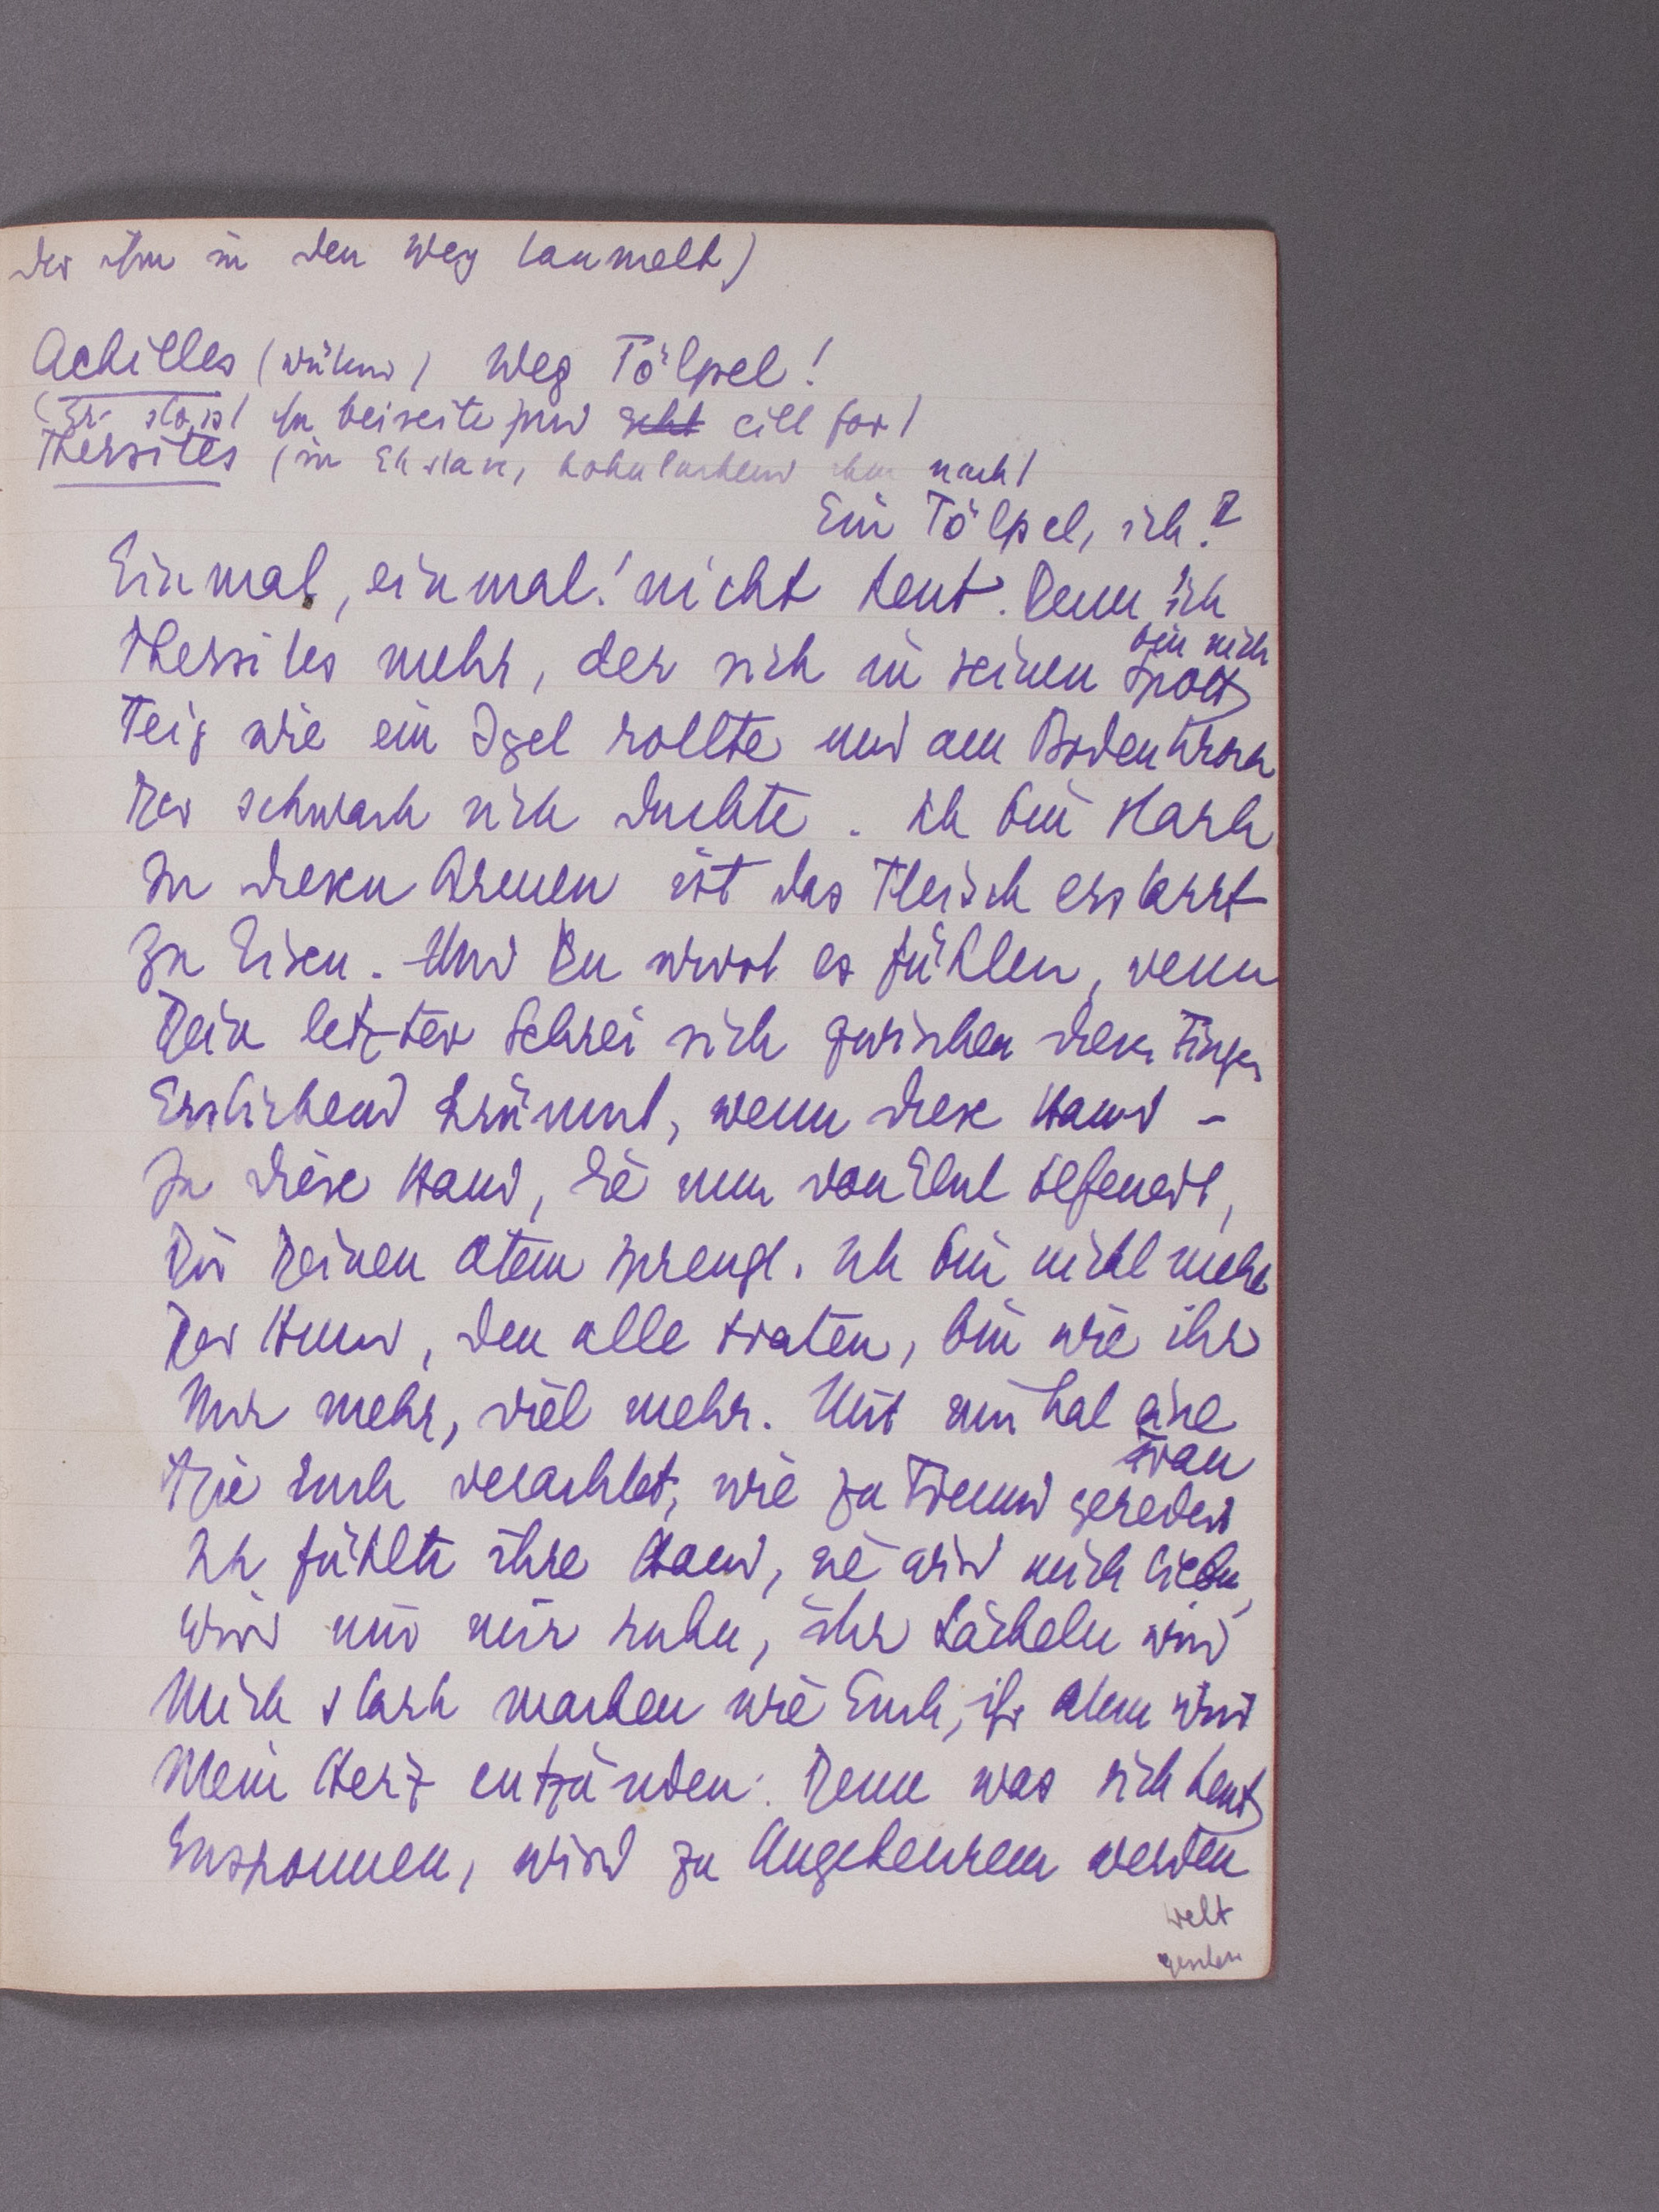 der ihm in den Weg taumelt)
Achilles (wütend) Weg Tölpel!
(Er stösst ihn beiseite und eilt fort)
Thersites (in Ekstase, hohnlachend ihm nach)
Ein Tölpel, ich?
Einmal, einmal! nicht heut. Denn ich
bin nich
Thersites mehr, der sich in seinen Spott
Feig wie ein Igel rollte und am Boden kroch
Der schwach sich duckte. Ich bin stark
In diesen Armen ist das Fleisch erstarrt
Zu Eisen. Und Du wirst es fühlen, wenn
Dein letzter Schrei sich zwischen diesen Fingern
Erstickend krümmt, wenn diese Hand –
Ja diese Hand, die nun von Glut befeuert,
Dir Deinen Atem sprengt. Ich bin nicht mehr
Der Hund, den alle traten, bin wie ihr
Nur mehr, viel mehr. Mit mir hat eine
Frau
Die Euch verachtet, wie zu Freund geredet
Ich fühlte ihre Hand, sie wird mich lieben,
Wird mit mir ruhn, ihr Lächeln wird
Mich stark machen wie Euch, ihr Atem wird
Mein Herz entzünden: Denn was sich heut
Ensponnen, wird zu Ungeheurem werden
Welt